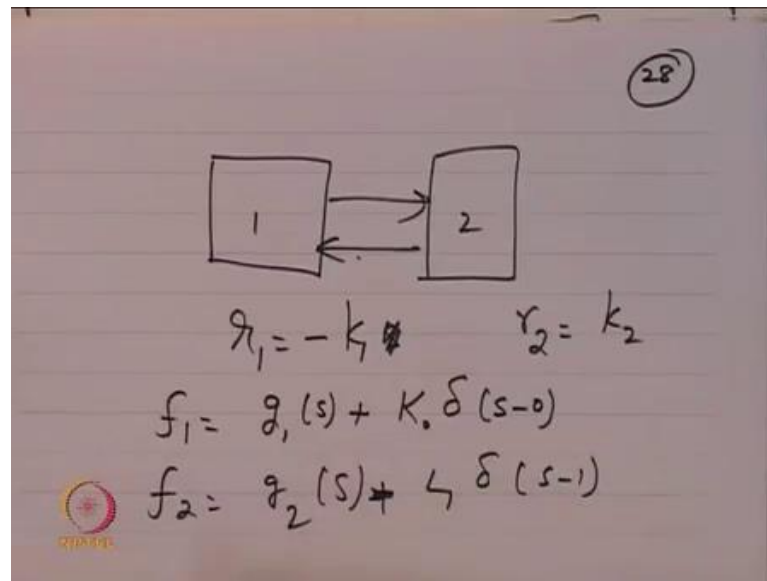 28
1 2
r₁ = - k₁ r₂ = k₂
f₁ = g₁(s) + K₀ δ(s-0)
f₂ = g₂(s) + L₁ δ(s-1)